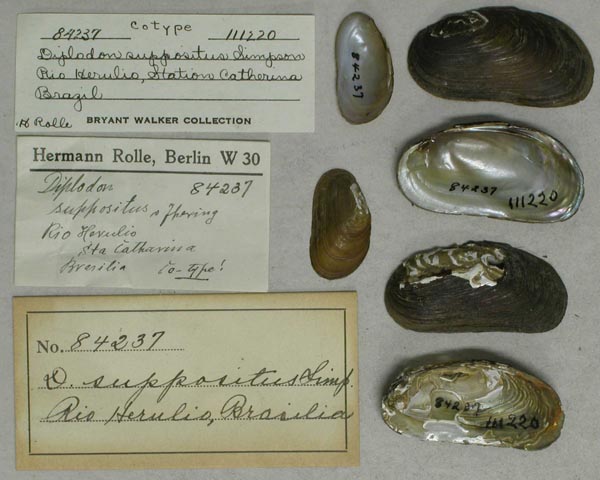 84237 Cotype 111220
Diplodon suppositus Simpson
Rio Herulio, Station Catherina
Brazil
H Rolle BRYANT WALKER COLLECTION
Hermann Rolle, Berlin W 30
Diplodon 84237
suppositus v Jhering
Rio Herulio
Sta Catharina
Bresilia Co-type!
No. 84237
D. suppositus Simp.
Rio Herulio, Brasilia
84237
84237
111220
84237
111220